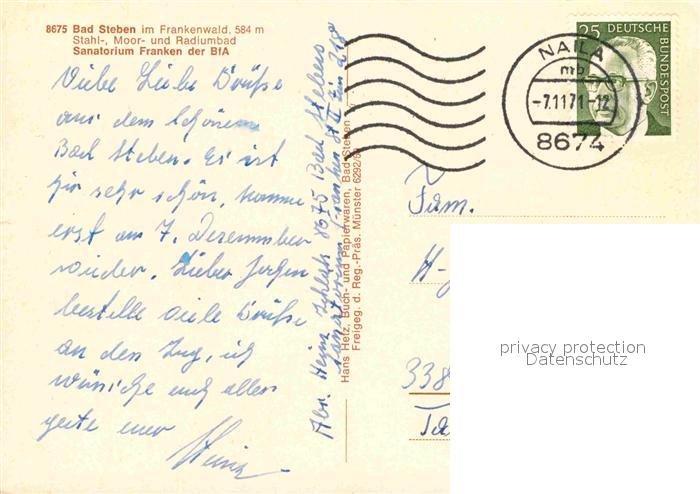 8675 Bad Steben im Frankenwald, 584 m
Stahl-, Moor- und Radiumbad
Sanatorium Franken der BfA
Viele Liebe Grüße
aus dem schönen
Bad Steben. Es ist
hir sehr schön, komme
erst am 7. Dezember
wieder. Lieber Jorgen
bestelle viele Grüße
an den Zug, ich
wünsche euch alles
gute euer
Heinz
Abs. Heinz 8675 Bad Steben
Sanatorium Franken St II Zim 218
Hans Hetz, Buch- und Papierwaren, Bad Steben
Freigeg. d. Reg.-Präs. Münster 6292/69
25
DEUTSCHE
BUNDESPOST
NAILA
mb
-7.11.71-12
8674
Fam.
H-
338
privacy protection
Datenschutz